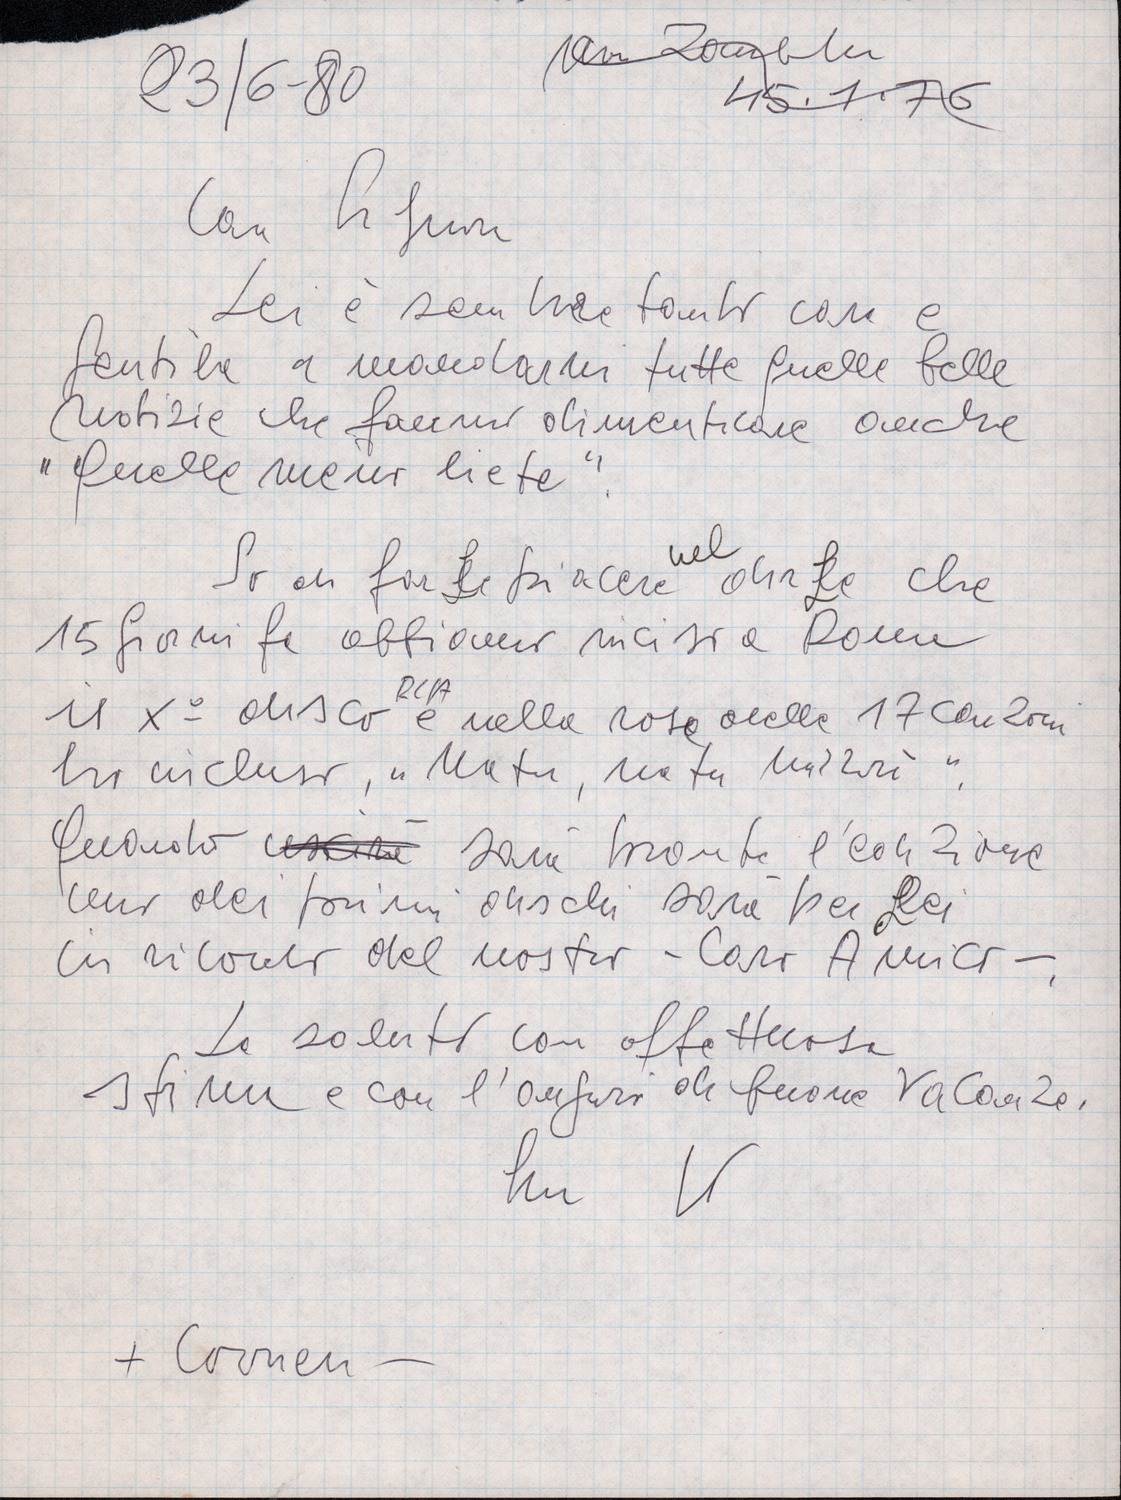 23/6-80
45.1.76
Caro Signore
Lei è sempre tanto caro e
gentile a mandarmi tutte quelle belle
notizie che fanno dimenticare anche
"Quelle meno liete".
So di farLe piacere nel dirLe che
15 giorni fa abbiamo inciso a Roma
il X° disco RCA e nella rosa delle 17 canzoni
ho incluso, "
Quando uscirà sarà pronta l'edizione
uno dei primi dischi sarà per Lei
in ricordo del nostro - Caro Amico -.
La saluto con affettuosa
stima e con l'auguri di buone Vacanze.
Suo V
+